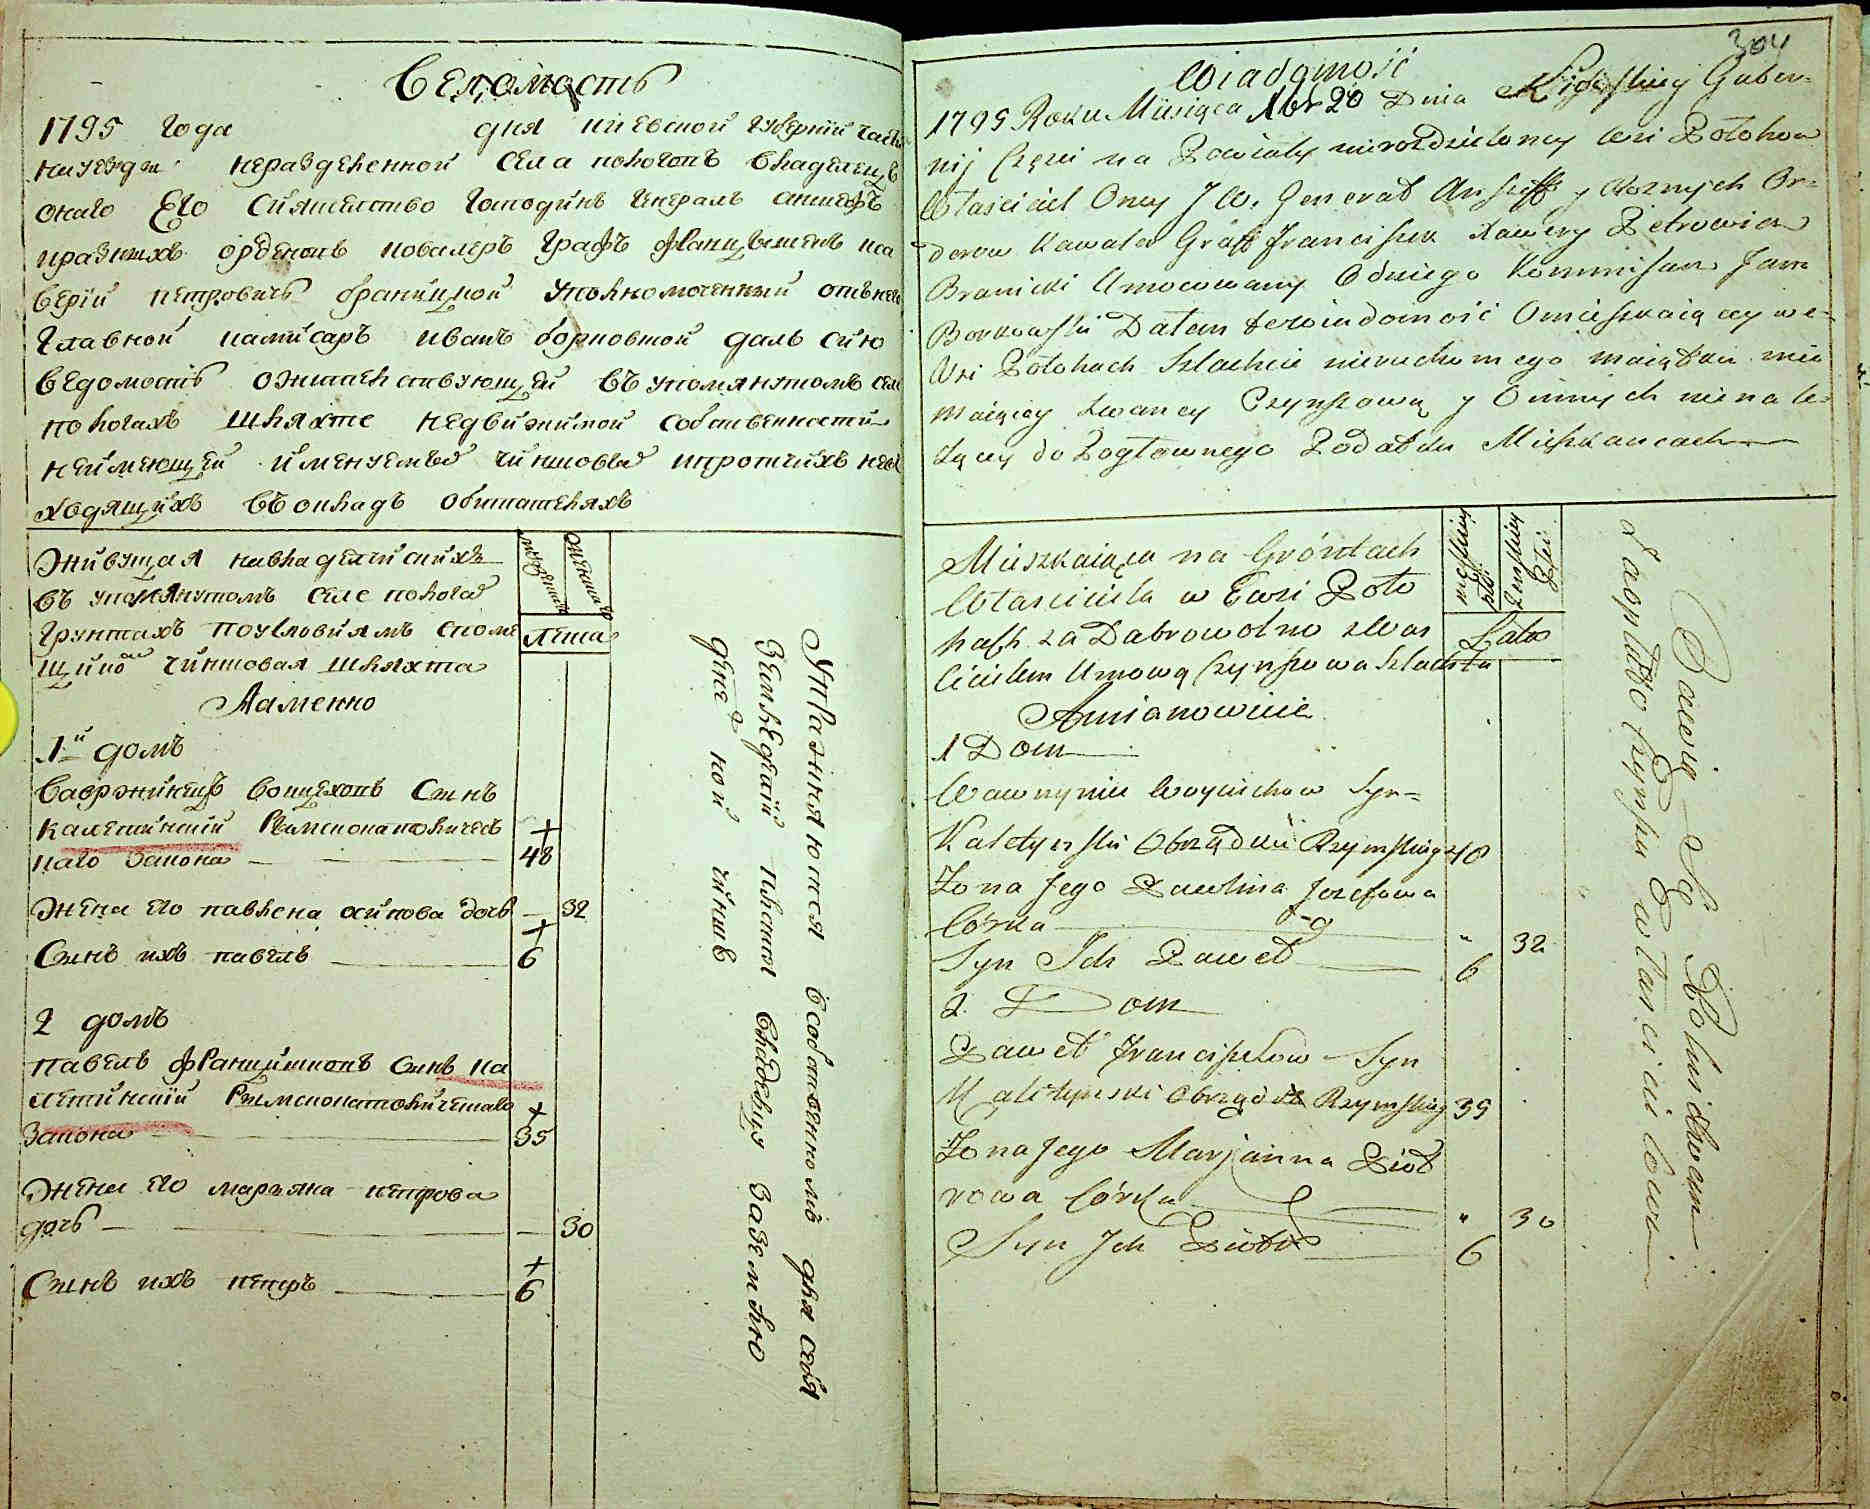 Ведомость
1795 года дня киевской губернии части
на уезды неразделенной села пологовъ владелецъ
онаго Его Сиятелство Господинъ Генералъ аншефъ
и разныхъ орденовъ кавалеръ Графъ францишекъ кса
верiй петровичъ браницкой уполномоченный отъ него
Главной комисаръ иванъ борковской далъ сию
Ведомость о жителствующей въ упомянутомъ селе
пологахъ шляхте недвижимой собственности
неимеющей именуемые чиншовые и протчихъ не
ходящихъ въ окладъ обитателяхъ
Живущая на владелческихъ
въ упомянутомъ селе пологах
грунтахъ по условиямъ с поме
щикомъ чиншовая шляхта
Имменно
мужеска
женска
Лета
1й домъ
Вавржинецъ Войцеховъ Сынъ
Калетинский Римскокатолическ
каго Закона — 48
Жена его павлена осипова дочь — 32
Сынъ ихъ павелъ — 6
2 домъ
павелъ францишковъ Сынъ ка
летинский Римскокатолическаго
Закона — 35
Жена его марьяна петрова
дочь — 30
Сынъ ихъ петръ — 6
Упражняются в собственномъ для себя
земледелии платя владельцу за землю
денежной чиншъ
304
Wiadomość
1795 Roku Miesiąca Xbr 20 Dnia Kijowskiey Guber-
nij Części na Powiaty nierozdzieloney wsi Połohow
Właściciel Oney J W. Generał Anszeff y Roznych Or-
derow Kawaler Graff Franciszek Xawery Petrowicz
Branicki Umocowany Od niego Kommisarz Jan
Borkowski Dałem tę wiadomość O mieszkaiącey we
Wsi Połohach Szlachcie nieruchomego maiątku nie
maiącey zwaney Czynszową y O innych nienale-
żący do Pogłownego Podatku Mieszkancach
Mieszkaiąca na Gróntach
Właściciela w Wsi Poło
hach za Dobrowolno z Właś
cicielem Umową Czynszowa Szlachta
Amianowicie
męskiey płci
żenskiey płci
Lata
1 Dom
Wawrzyniec Woyciechow Syn-
Kaletynski Obrządku Rzymskiego 48
Żona Jego Pawlina Jozefowa
Córka — 32
Syn Ich Paweł — 6
2. Dom
Paweł Franciszkow Syn
Kaletynski Obrządku Rzymskiego 35
Żona Jego Marjanna Piot
rowa Córka — 30
Syn Ich Piotr — 6
Bawią Się Rolnictwem
Zapłatą Czynszu Właścicielowi